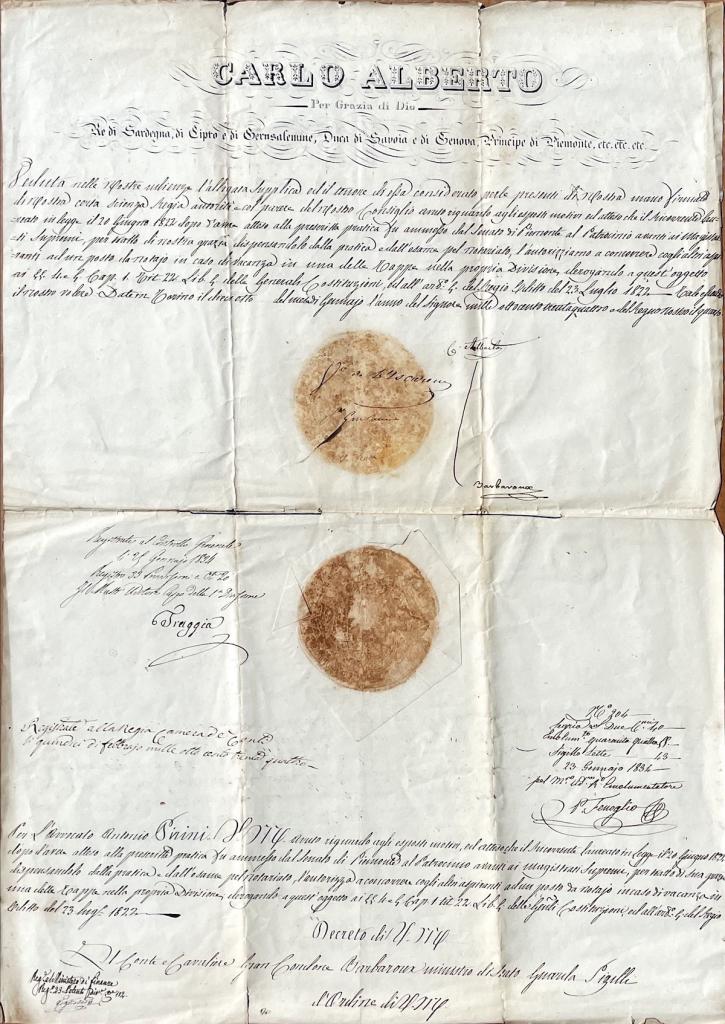 CARLO ALBERTO
Per Grazia di Dio
Re di Sardegna, di Cipro e di Gerusalemme, Duca di Savoia e di Genova, Principe di Piemonte, etc. etc. etc.
Veduta nella Nostra udienza l'allegata supplica ed il tenore di essa considerato per le presenti di Nostra mano firmate
di Nostra certa scienza, Regia autorità col parere del Nostro Consiglio avuto riguardo agli esposti motivi ed atteso che il Ricorrente
in legge il 20 Giugno 1822 dopo d'aver atteso alla prescritta pratica fu ammesso dal Senato di Piemonte al Patrocinio avanti ai Magistra-
ti Supremi, per tratto di nostra grazia dispensandolo dalla pratica e dall'esame pel notariato, l'autorizziamo a concorrere cogli altri aspi-
ranti ad un posto da notajo in caso di vacanza in una delle Tappe nella propria Divisione, derogando a quest'oggetto
ai §§ 4 e 5 Cap. 1. Tit. 22 Lib. 5 delle Generali Costituzioni, ed all'art. 5 del Regio Editto del 23 Luglio 1822
il nostro volere Dat. in Torino il del mese di Gennajo l'anno del Signore mille ottocento trentaquattro e del Regno Nostro il quarto
C. Alberto
Barbaroux
Registrate al Controllo Generale
li 25 Gennajo 1834
Registro 33 20
della 1a Divisione
Traggia
Registrate alla Regia Camera de' Conti
li quindici di febbrajo mille otto cento trenta quattro
No 204
Due 40
quaranta quattro
Sigillo Sette 43
23 Gennajo 1834
Emolumentatore
Fenoglio
Per L'Avvocato Antonio Prini. V.M. Avuto riguardo agli esposti motivi, ed atteso che il Ricorrente laureato in Legge il 20 Giugno 1822
dopo d'aver atteso alla prescritta pratica fu ammesso dal Senato di Piemonte al Patrocinio avanti ai Magistrati Supremi, per tratto di sua grazia
dispensandolo dalla pratica e dall'esame pel Notariato, l'autorizza a concorrere cogli altri aspiranti ad un posto da notajo in caso di vacanza in
una delle Tappe nella propria Divisione, derogando a quest'oggetto ai §§ 4 e 5 Cap. 1 tit. 22 Lib. 5 delle Gli Costituzioni ed all'art. 5 del Regio
Editto del 23 1822
Decreto di V.M.
Il Conte e Cavaliere Gran Cordone Barbaroux ministro di Stato Guarda Sigilli
d'Ordine di V.M.